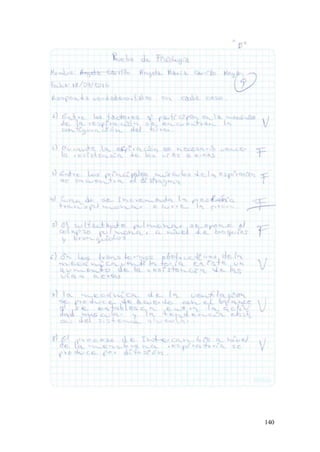 "D"
Prueba de Fisiología
Nombre: Angela María Carrillo
Fecha: 18/09/2016
9
Responda verdadero o falso en cada caso.
1) Entre los factores q participan en la mecánica
de la respiración se encuentran la
configuración del tórax. V
2) Durante la espiración es necesario vencer
la resistencia de las vías aéreas F
3) Entre los principales músculos de la espiración
se encuentra el diafragma F
4) Cuando se incrementa la presión
transpulmonar F
5) El surfactante pulmonar se opone al
colapso pulmonar a nivel de bronquios
y bronquiolos F
6) En los trastornos obstructivos de la
mecánica ventilatoria existe un
aumento de la resistencia de las
vías aéreas V
7) La mecánica de la ventilación
se produce de acuerdo con el balance
q se establezca entre la activi
dad muscular y la tendencia elás
del sistema V
8) El proceso de Intercambio a nivel
de la membrana respiratoria se
produce por difusión. V
140